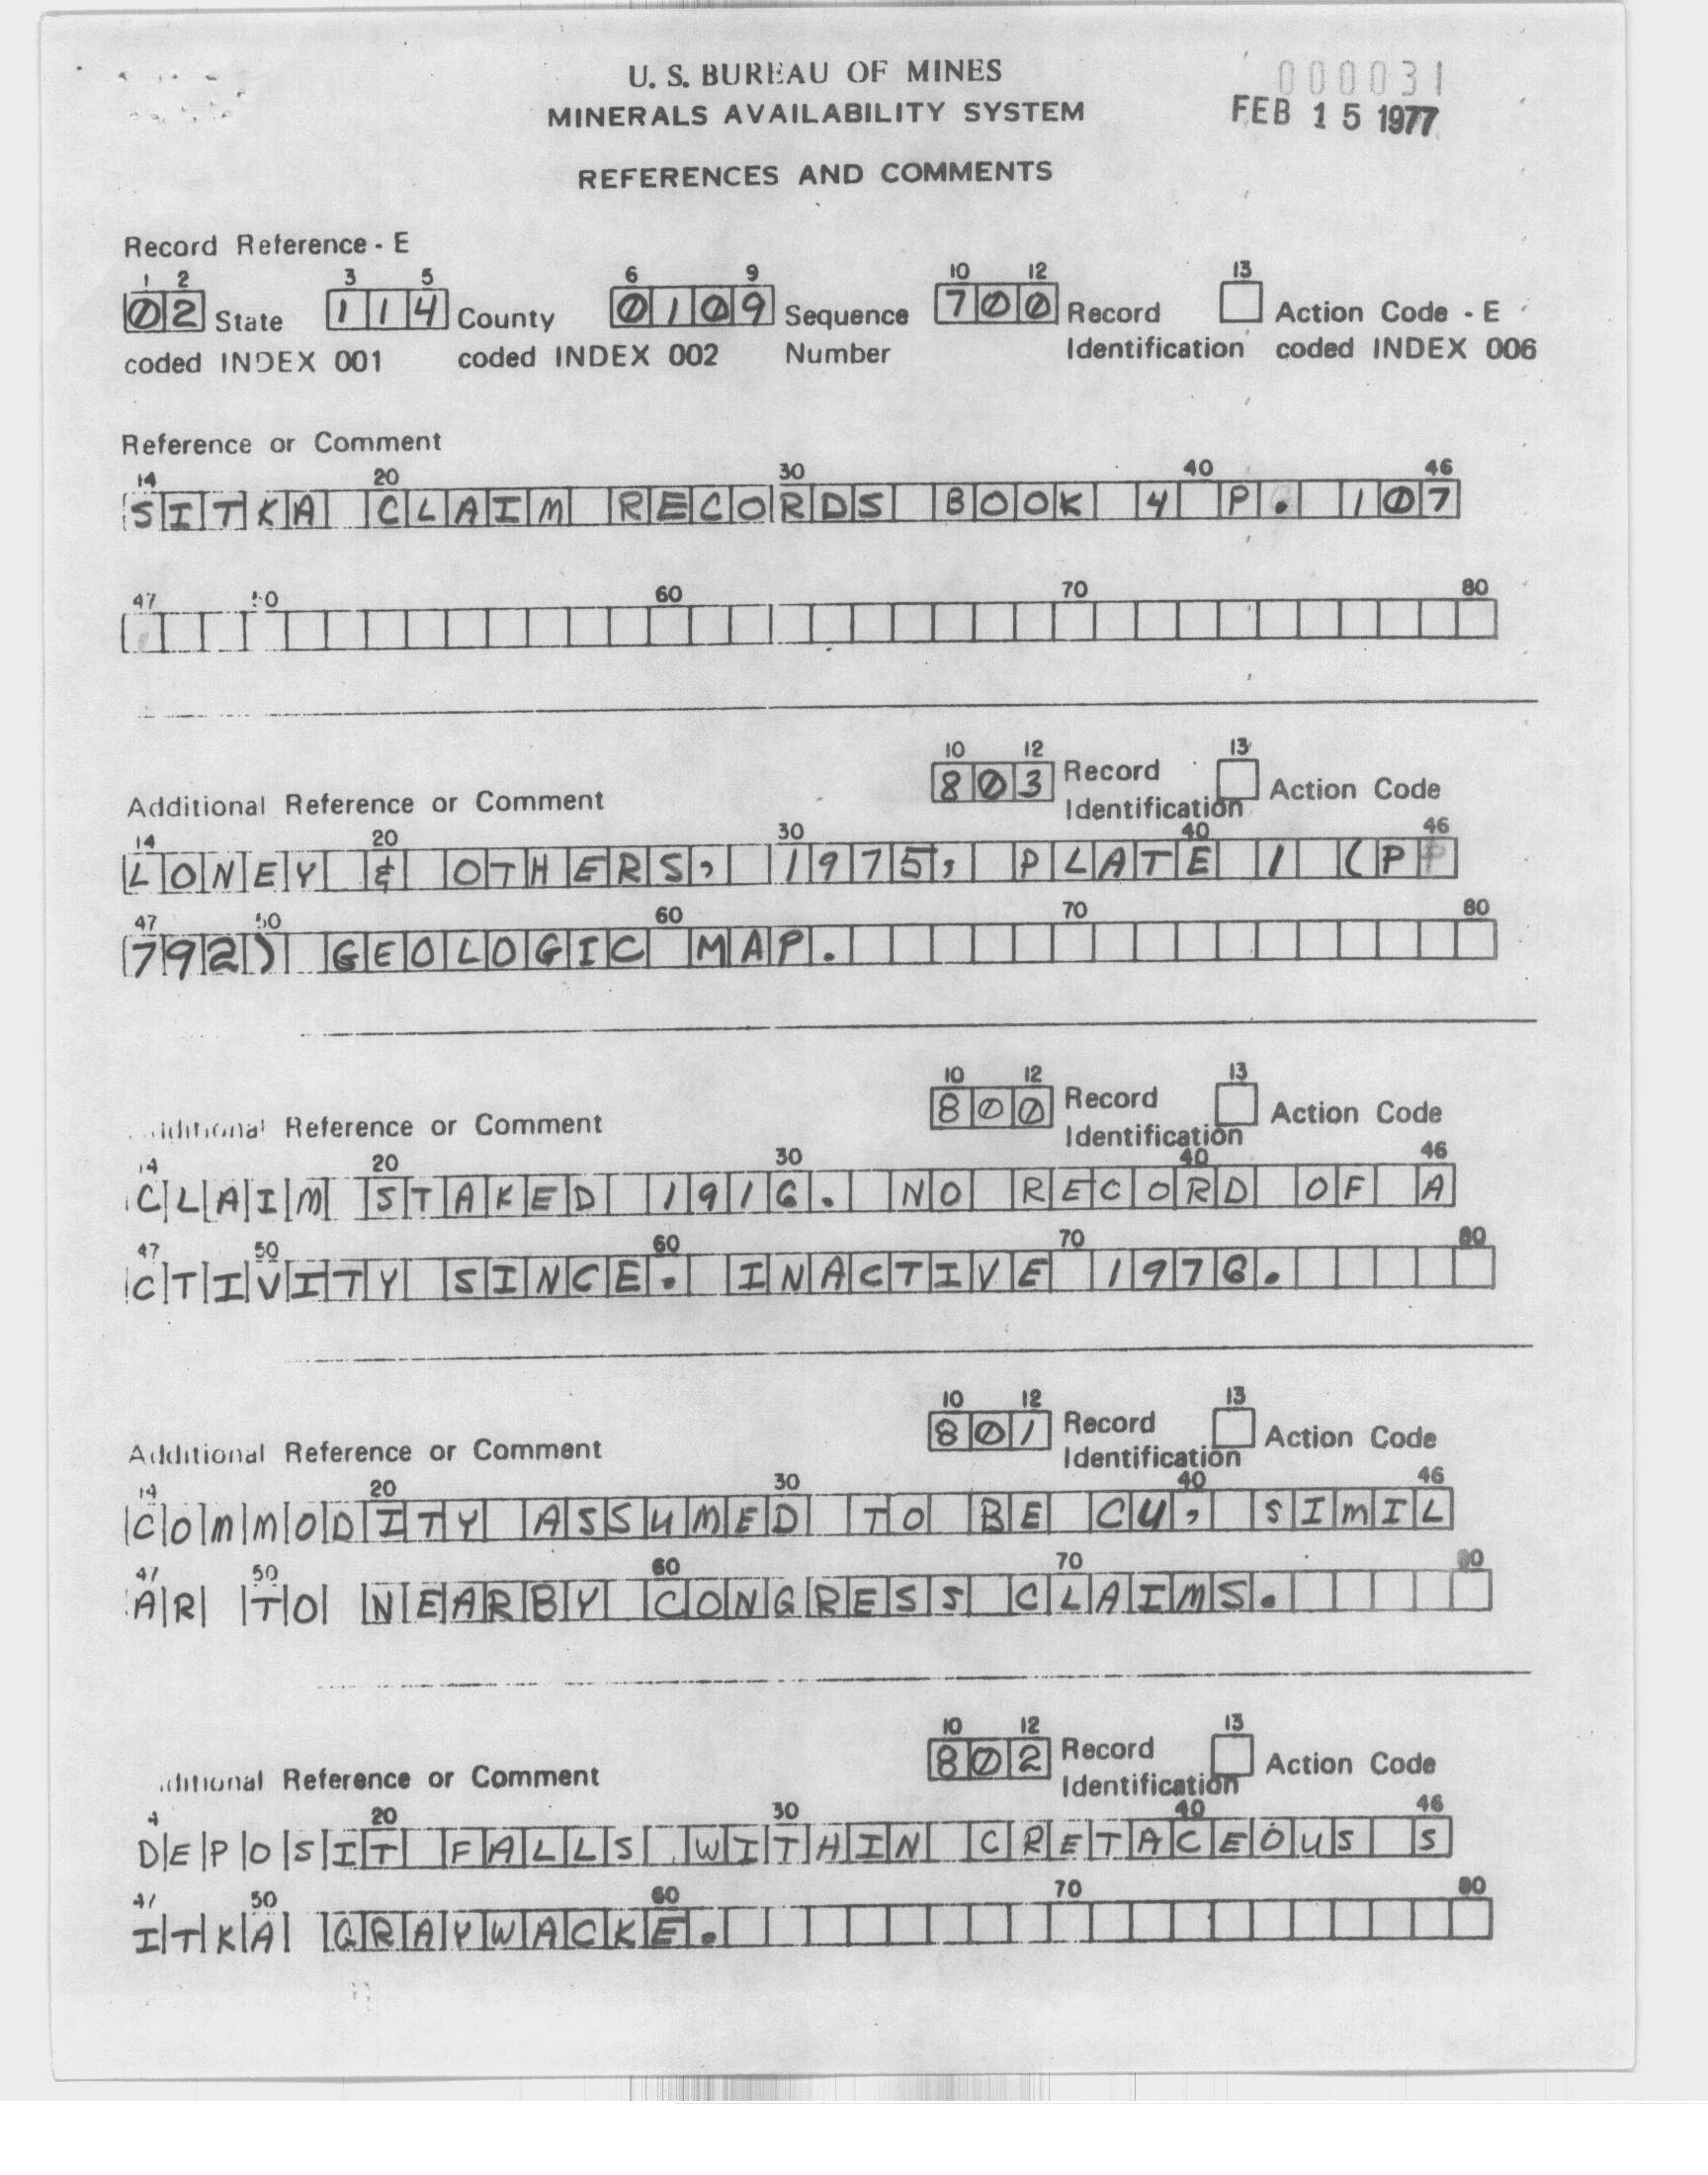 U. S. BUREAU OF MINES
MINERALS AVAILABILITY SYSTEM
REFERENCES AND COMMENTS
000031
FEB 15 1977
Record Reference - E
1 2 3 5 6 9 10 12 13
02 State 114 County 0109 Sequence 700 Record Action Code - E
coded INDEX 001 coded INDEX 002 Number Identification coded INDEX 006
Reference or Comment
14 20 30 40 46
SITKA CLAIM RECORDS BOOK 4 P. 107
47 50 60 70 80
10 12 13
803 Record Action Code
Additional Reference or Comment Identification
14 20 30 40 46
LONEY & OTHERS, 1975, PLATE 1 (PP
47 50 60 70 80
792) GEOLOGIC MAP.
10 12 13
800 Record Action Code
Additional Reference or Comment Identification
14 20 30 40 46
CLAIM STAKED 1916. NO RECORD OF A
47 50 60 70 80
CTIVITY SINCE. INACTIVE 1976.
10 12 13
801 Record Action Code
Additional Reference or Comment Identification
14 20 30 40 46
COMMODITY ASSUMED TO BE CU, SIMIL
47 50 60 70 80
AR TO NEARBY CONGRESS CLAIMS.
10 12 13
802 Record Action Code
ditional Reference or Comment Identification
4 20 30 40 46
DEPOSIT FALLS WITHIN CRETACEOUS S
47 50 60 70 80
ITKA GRAYWACKE.